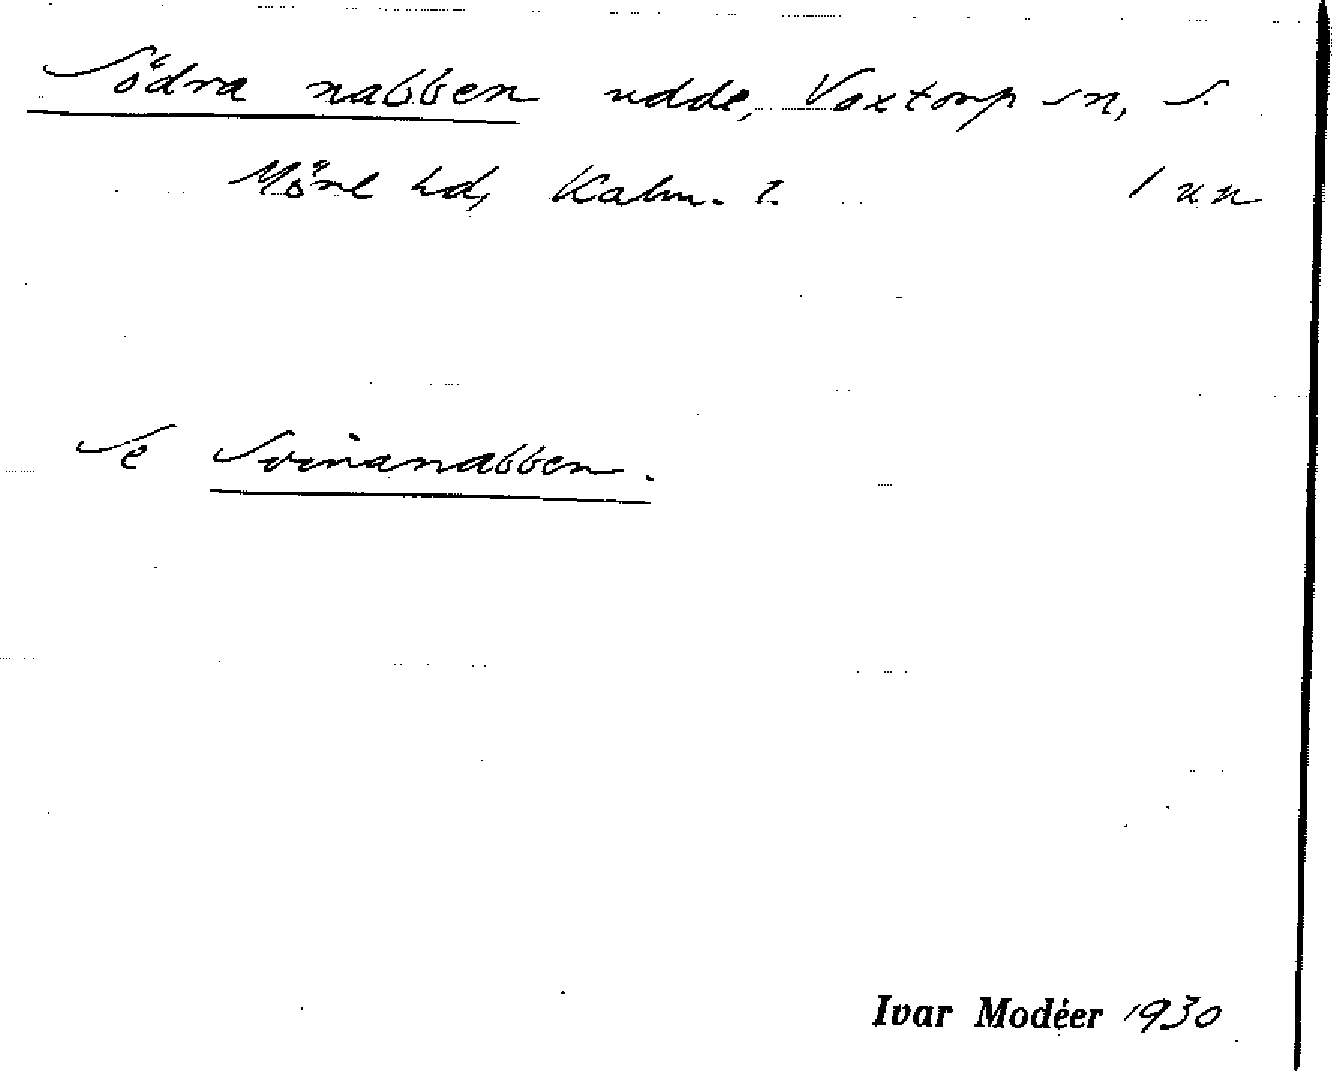 Södra nabben udde, Voxtorp sn, S.
Möre hd, Kalm. l. / u.n
Se Svinanabben.
Ivar Modéer 1930